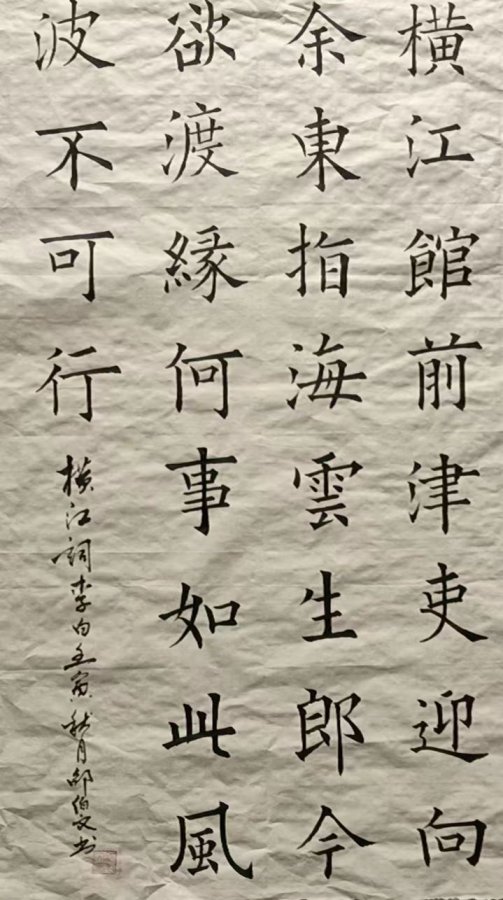 橫江館前津吏迎向
余東指海雲生郎今
欲渡緣何事如此風
波不可行
橫江詞李白壬寅秋月邵伯文书